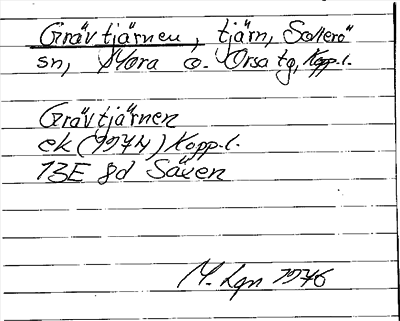 Grävtjärnen, tjärn, Sollerö
sn, Mora o. Orsa tg, Kopp.l.
Grävtjärnen
ek (1974) Kopp.l.
13E 8d Säxen
M. Lgn 1976